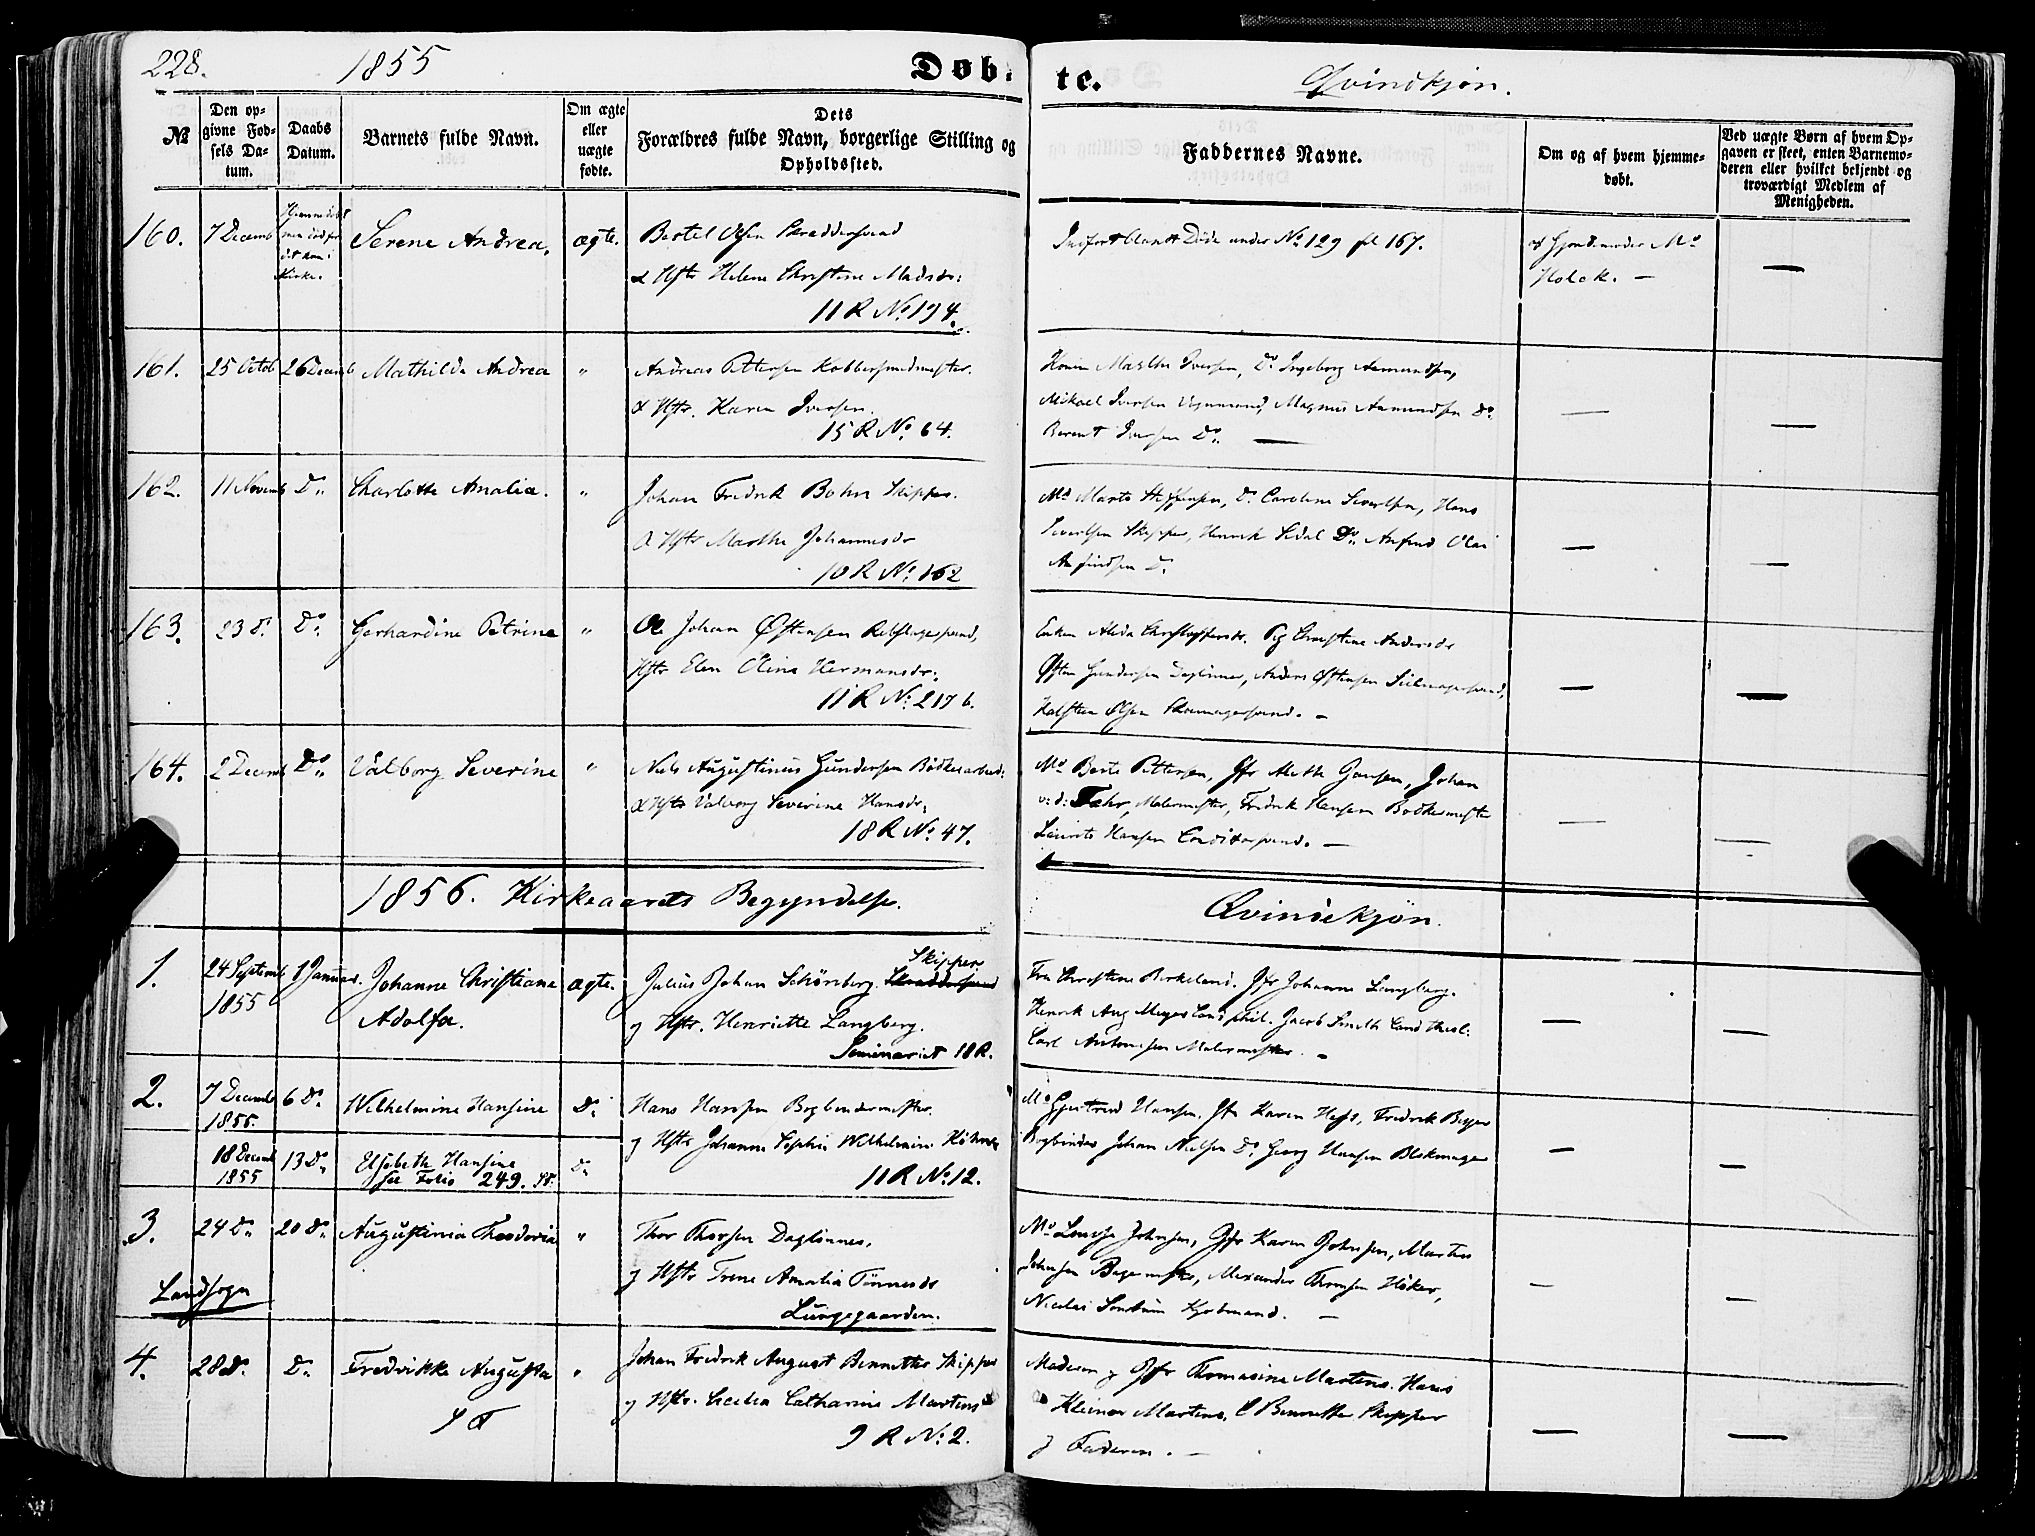 228. 1855 Døb-
te. Qvindkjøn.
№
Den op-
givne Fød-
sels Da-
tum.
Daabs
Datum.
Barnets fulde Navn.
Om ægte
eller
uægte
fødte.
Dets
Forældres fulde Navn, borgerlige Stilling og
Opholdssted.
Faddernes Navne.
Om og af hvem hjemme-
døbt.
Ved uægte Børn af hvem Op-
gaven er skeet, enten Barnemo-
deren eller hvilket bekjendt og
troværdigt Medlem af
Menigheden.
160. 7 Decemb Serene Andrea. ægte.
Kirke.
Bertel Olsen Skreddersvend
& Hstr Helene Christine Madsdr:
11 R No 194.
Indført blandt Døde under No 129 fol 167.
af Gjordemoder Mᵉ
Holck. —
161. 25 Octob 26 Decemb Mathilde Andrea "
Andreas Pettersen Kobbersmedmester.
& Hstr. Karen Iversen.
15 R No 64.
Konen Marthe Iversen, Do Ingeborg Aamundsen,
Mikael Iversen Vognmand, Magnus Aamundsen Do
Berent Iversen Do. —
162. 11 Novemb Do Charlotte Amalia. "
Johan Fredrik Bohn Skipper.
& Hstr Marthe Johannesdr
10 R No 162
Md Marta Steffensen, Do Caroline Sivertsen, Hans
Sivertsen Skipper, Henrik Sedal Do Anfind Olai
Anfindsen Do
163. 23 do. Do. Gerhardine Petrine "
Ole Johan Østensen Rebslagersvend,
Hstr Elen Oline Hermansdr.
11 R No 217 b.
Enken Alida Christoffersdr. Pig Christine Andersdr
Østen Gundersen Daglønner, Anders Østensen Seilmagersvend,
Halsten Olsen Skomagersvend. —
164. 2 Decemb Do. Valborg Severine "
Niels Augustinus Gundersen Bødkerarbeid:
& Hstr Valborg Severine Hansdr;
18 R No 47.
Md Berte Pettersen, Jfr Meth Jansen, Johan
v: d: Fehr, Malermester, Fredrik Hansen Bødkermester
Laurits Hansen Conditorsvend. —
1856. Kirkeaarets Begyndelse.
Qvindekjøn.
1. 24 Septemb 1 Januar. Johanne Christiane ægte.
1855 Adolfa.
Skipper
Julius Johan Schönberg. Skreddersvend
og Hstr. Henriette Langberg.
Seminariet 18 R.
Fru Christine Birkeland. Jfr Johanne Langberg.
Henrik Aug Meyer Cand phil. Jacob Smith Cand theol.
Carl Antonisen Malermester. —
2. 7 Decemb 6 Do. Wilhelmine Hansine Do
1855.
Hans Hansen Bogbindermester.
og Hstr Johanne Sophie Wilhelmine
11 R No 12.
Md Gjertrud Hansen. Jfr Karen Hess, Fredrik Beyer
Bogbinder Johan Nielsen Do. Georg Hansen Blokmager
18 Decemb 13 Do. Elsebeth Hansine Do
1855 see Folio 249.
3. 24 Do. 20 Do. Augustinia Theodoria "
Landsogn
Thor Thorsen Daglønner,
og Hstr Trine Amalia Tønnesdr
Lungegaarden.
Md Lovise Johnsen, Jfr Karen Johnsen, Martin
Johnsen Bagermester, Alexander Thomsen Høker,
Nicolai Sontum Kjøbmand. —
4. 28 Do. Do. Fredrikke Augusta "
Johan Fredrik August Bennetter Skipper
og Hstr. Cecilia Catharine Martens
9 R No 2.
Moderen og Jfr Thomasine Martens. Hans
Kleiner Martens, C Bennetter Skipper
og Faderen. —